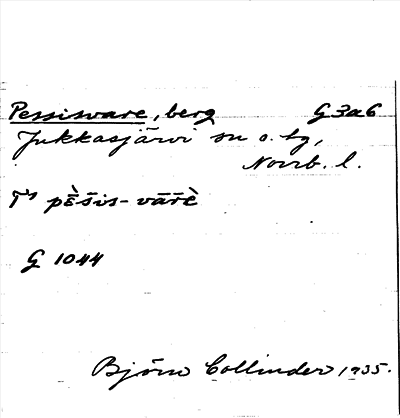 Pessisvare, berg G 3a6
Jukkasjärvi sn o. tg,
Norrb. l.
Tˢ pɛ̀̄šis-vārɛ̀
G 1044
Björn Collinder 1935.